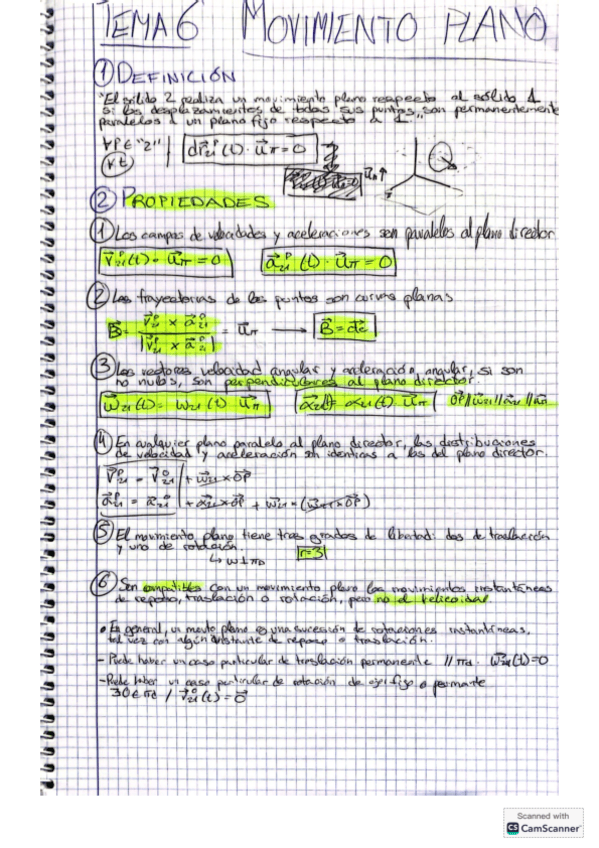 TEMA 6 MOVIMIENTO PLANO
① DEFINICIÓN
"El sólido 2 realiza un movimiento plano respecto al sólido 1
si los desplazamientos de todos sus puntos son permanentemente
paralelos a un plano fijo respecto a 1"
∀P∈"2" | dr⃗²¹ᴾ(t)·u⃗π=0
∀t
② PROPIEDADES
① Los campos de velocidades y aceleraciones son paralelos al plano director
v⃗₂₁ᴾ(t)·u⃗π=0 a⃗₂₁ᴾ(t)·u⃗π=0
② Las trayectorias de los puntos son curvas planas
B⃗= v⃗₂₁ᴾ × a⃗₂₁ᴾ / |v⃗₂₁ᴾ × a⃗₂₁ᴾ| = u⃗π →
③ Los vectores velocidad angular y aceleración angular, si son
no nulos, son perpendiculares al plano director.
ω⃗₂₁(t)=ω₂₁(t)u⃗π α⃗₂₁(t)=α₂₁(t)·u⃗π
④ En cualquier plano paralelo al plano director, las distribuciones
de velocidad y aceleración son identicas a las del plano director.
v⃗₂₁ᴾ = v⃗₂₁⁰ + ω⃗₂₁×O⃗P
a⃗₂₁ᴾ = a⃗₂₁⁰ + α⃗₂₁×O⃗P + ω⃗₂₁×(ω⃗₂₁×O⃗P)
⑤ El movimiento plano tiene tres grados de libertad: dos de traslación
y uno de rotación. r=3
↳ ω⊥πD
⑥ Son compatibles con un movimiento plano los movimientos instantáneos
de reposo, traslación o rotación, pero no el helicoidal
• En general, un movto plano es una sucesión de rotaciones instantáneas,
tal vez con algún instante de reposo o traslación.
- Puede haber un caso particular de traslación permanente // πd. ω⃗₂₁(t)=0
- Puede haber un caso particular de rotación de eje fijo o permante
∃O∈πd / v⃗₂₁⁰(t)=0⃗
Scanned with
CS CamScanner